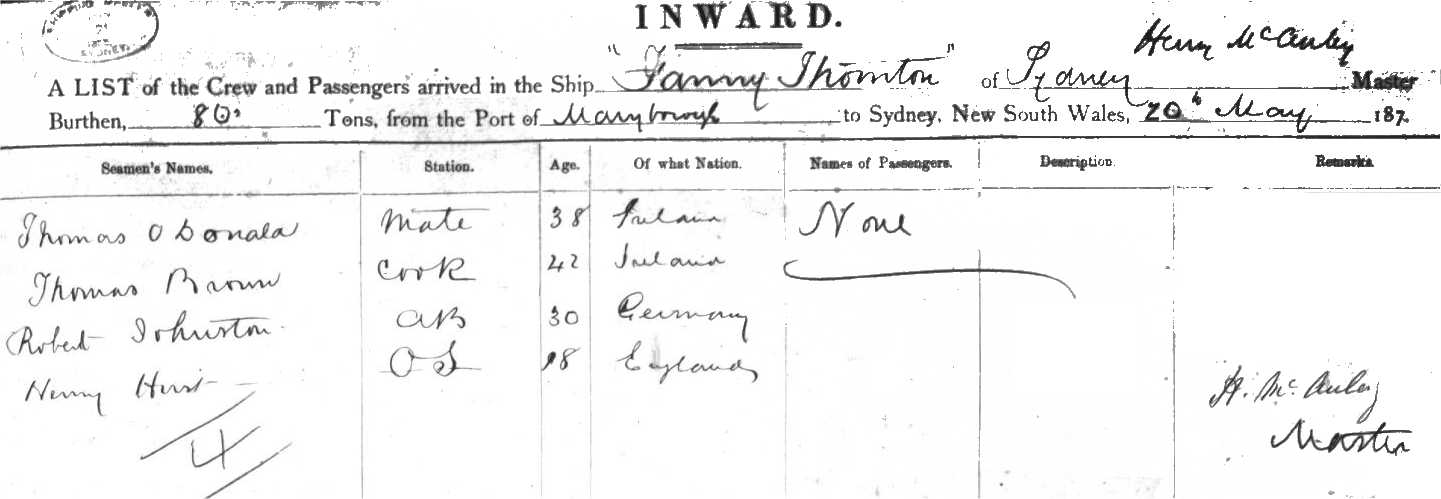 SHIPPING MASTER'S
SYDNEY
INWARD.
Henry McAuley
A LIST of the Crew and Passengers arrived in the Ship "Fanny Thornton" of Sydney Master
Burthen, 80. Tons, from the Port of Maryborough to Sydney, New South Wales, 20th May 187.
Seamen's Names. Station. Age. Of what Nation. Names of Passengers. Description. Remarks
Thomas O Donald Mate 38 Ireland None
Thomas Brown Cook 42 Ireland
Robert Johnston AB 30 Germany
Henry Hirst OS 18 England
H. McAuley
Master
4